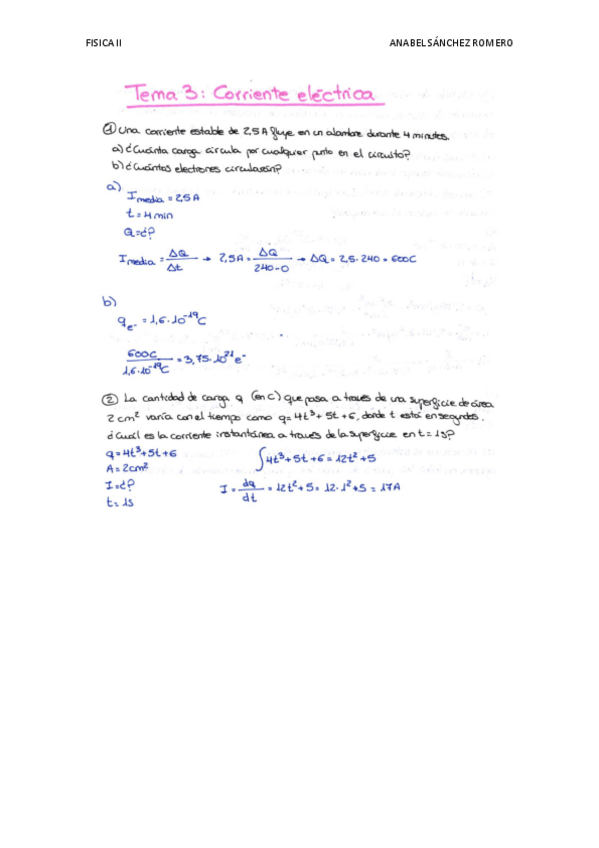 FISICA II
ANABEL SÁNCHEZ ROMERO
Tema 3: Corriente eléctrica
① Una corriente estable de 2,5 A fluye en un alambre durante 4 minutos.
a) ¿Cuánta carga circula por cualquier punto en el circuito?
b) ¿Cuántos electrones circularán?
a)
I media = 2,5 A
t = 4 min
Q = ¿?
I media = ΔQ/Δt → 2,5A = ΔQ/240-0 → ΔQ = 2,5 · 240 = 600C
b)
q e- = 1,6 · 10^-19 C
600C/1,6·10^-19 C = 3,75 · 10^21 e-
② La cantidad de carga q (en C) que pasa a través de una superficie de área
2 cm² varía con el tiempo como q = 4t³ + 5t + 6, donde t está en segundos.
¿Cuál es la corriente instantánea a través de la superficie en t = 1s?
q = 4t³ + 5t + 6
∫4t³ + 5t + 6 = 12t² + 5
A = 2cm²
I = ¿?
I = dq/dt = 12t² + 5 = 12 · 1² + 5 = 17A
t = 1s